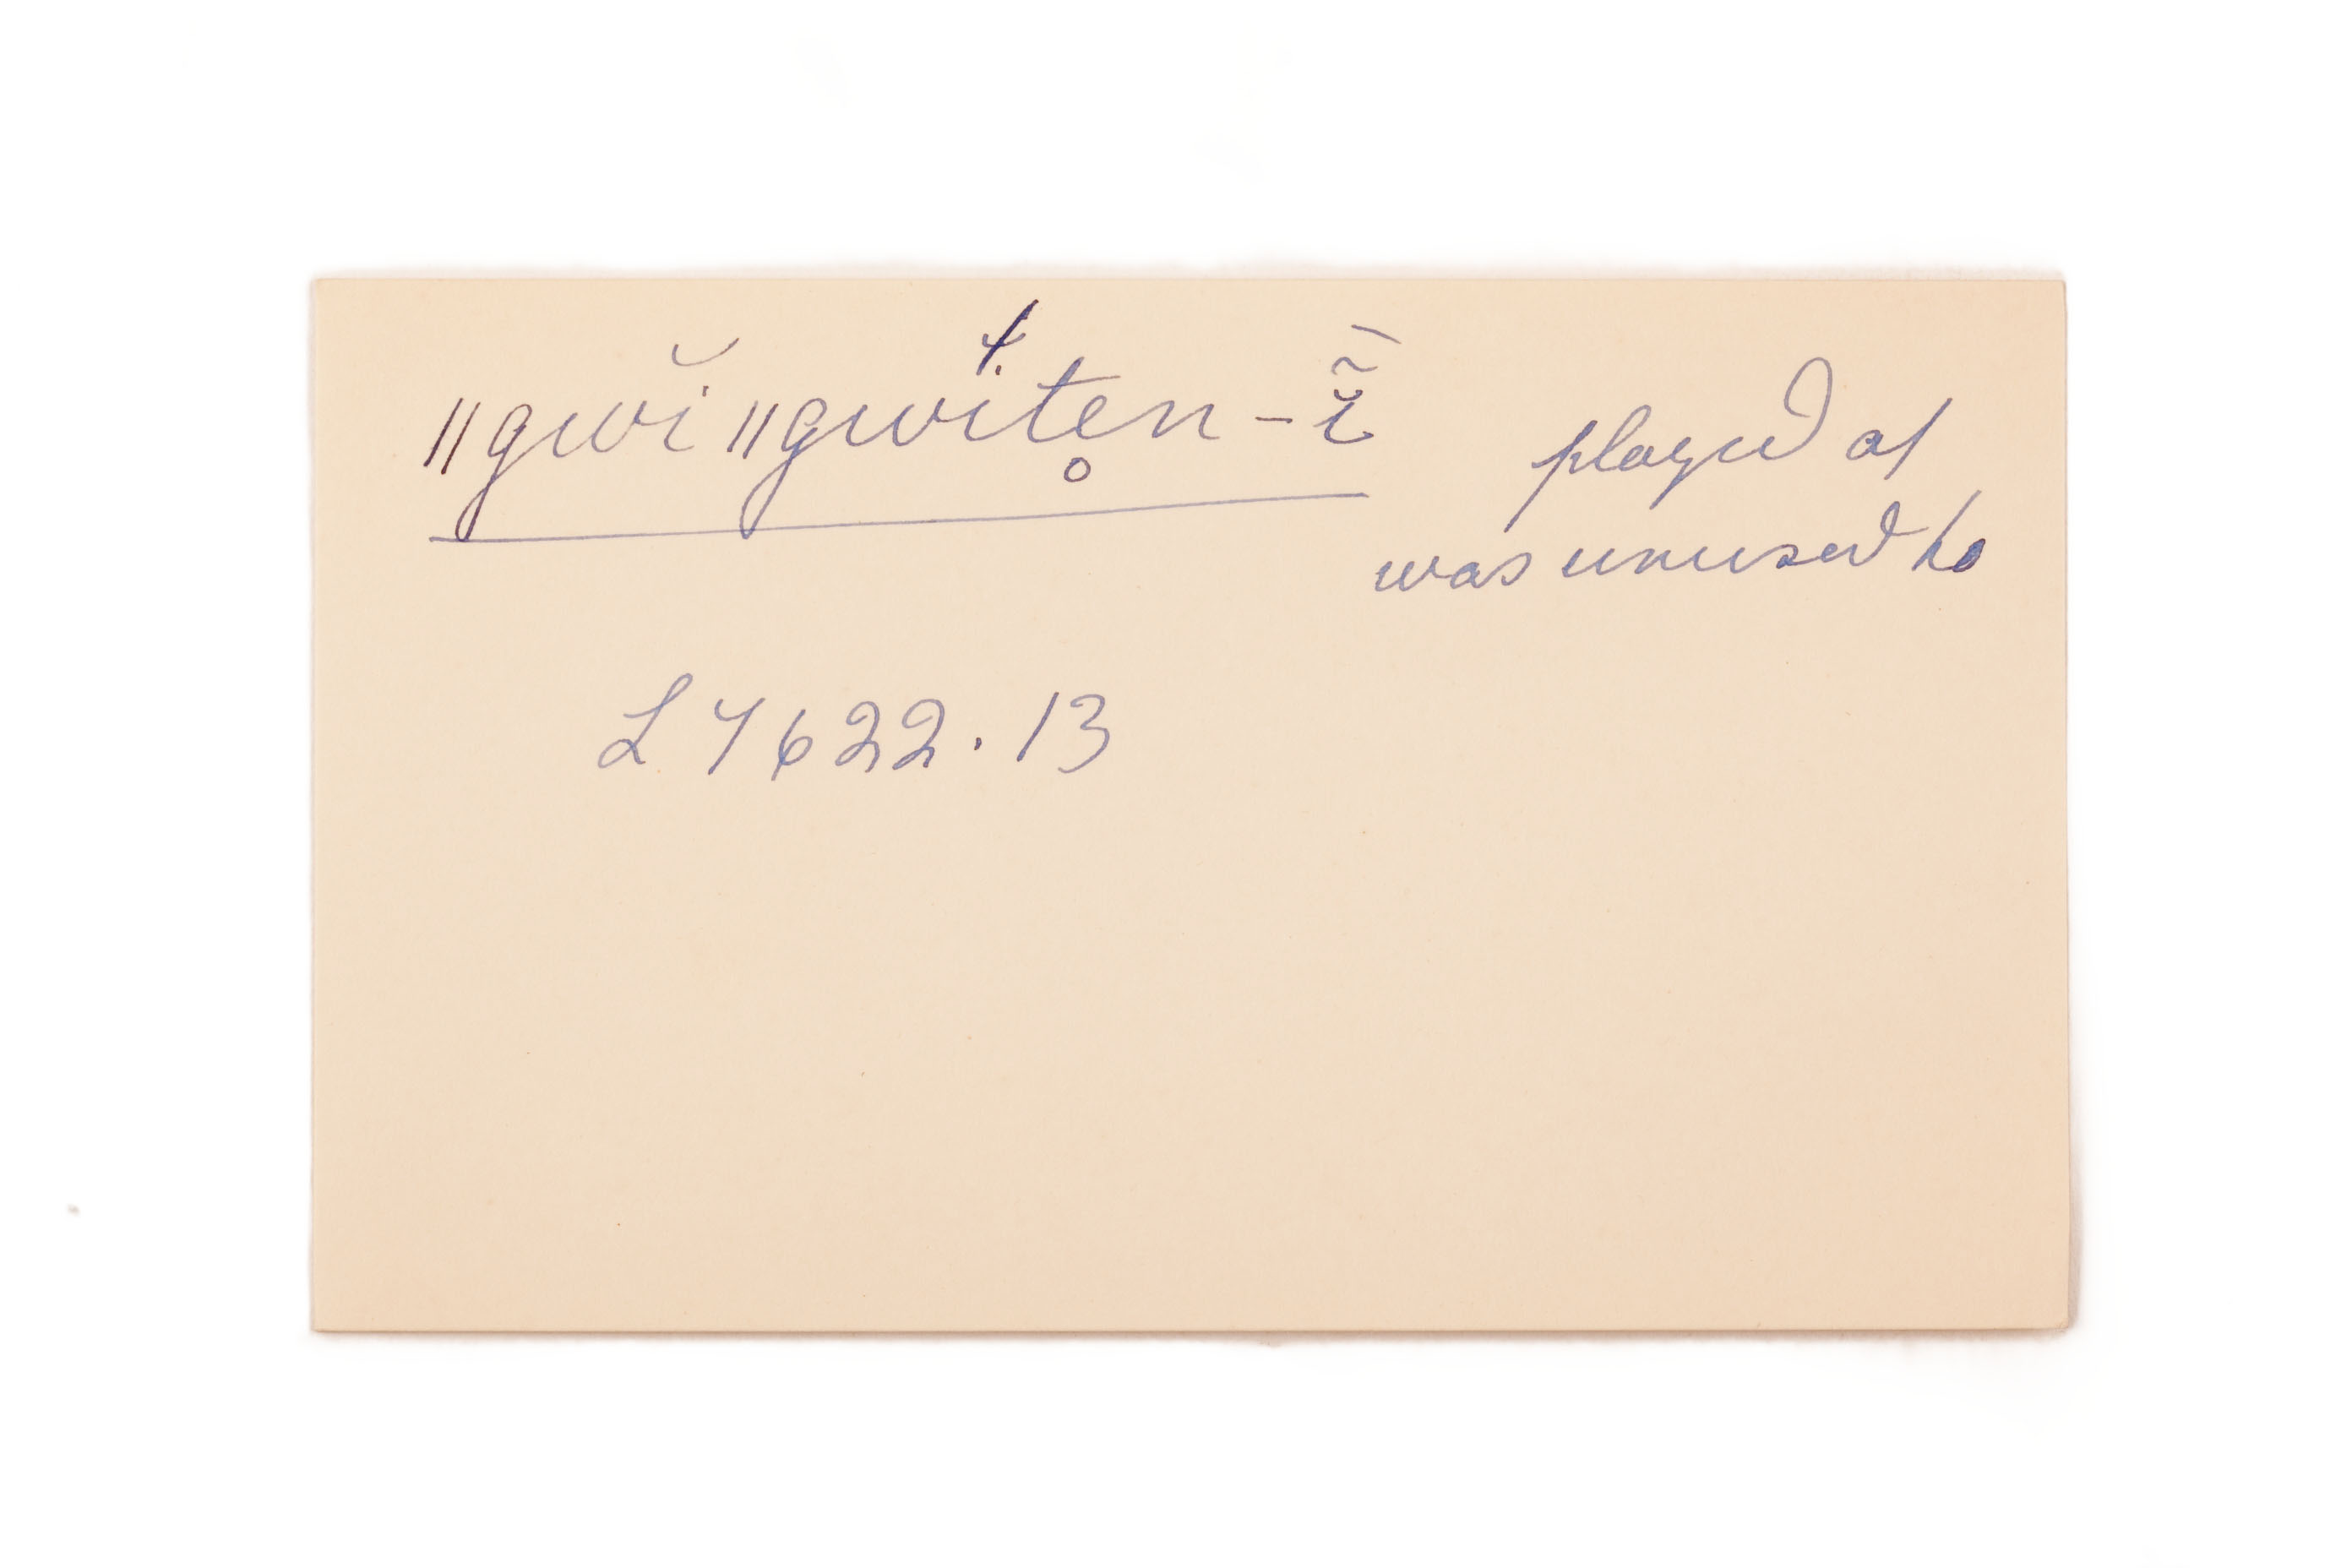 ǁgwĭ ǁgwĭte̥n-ĩ̄ played at
was unused to
L 7622.13